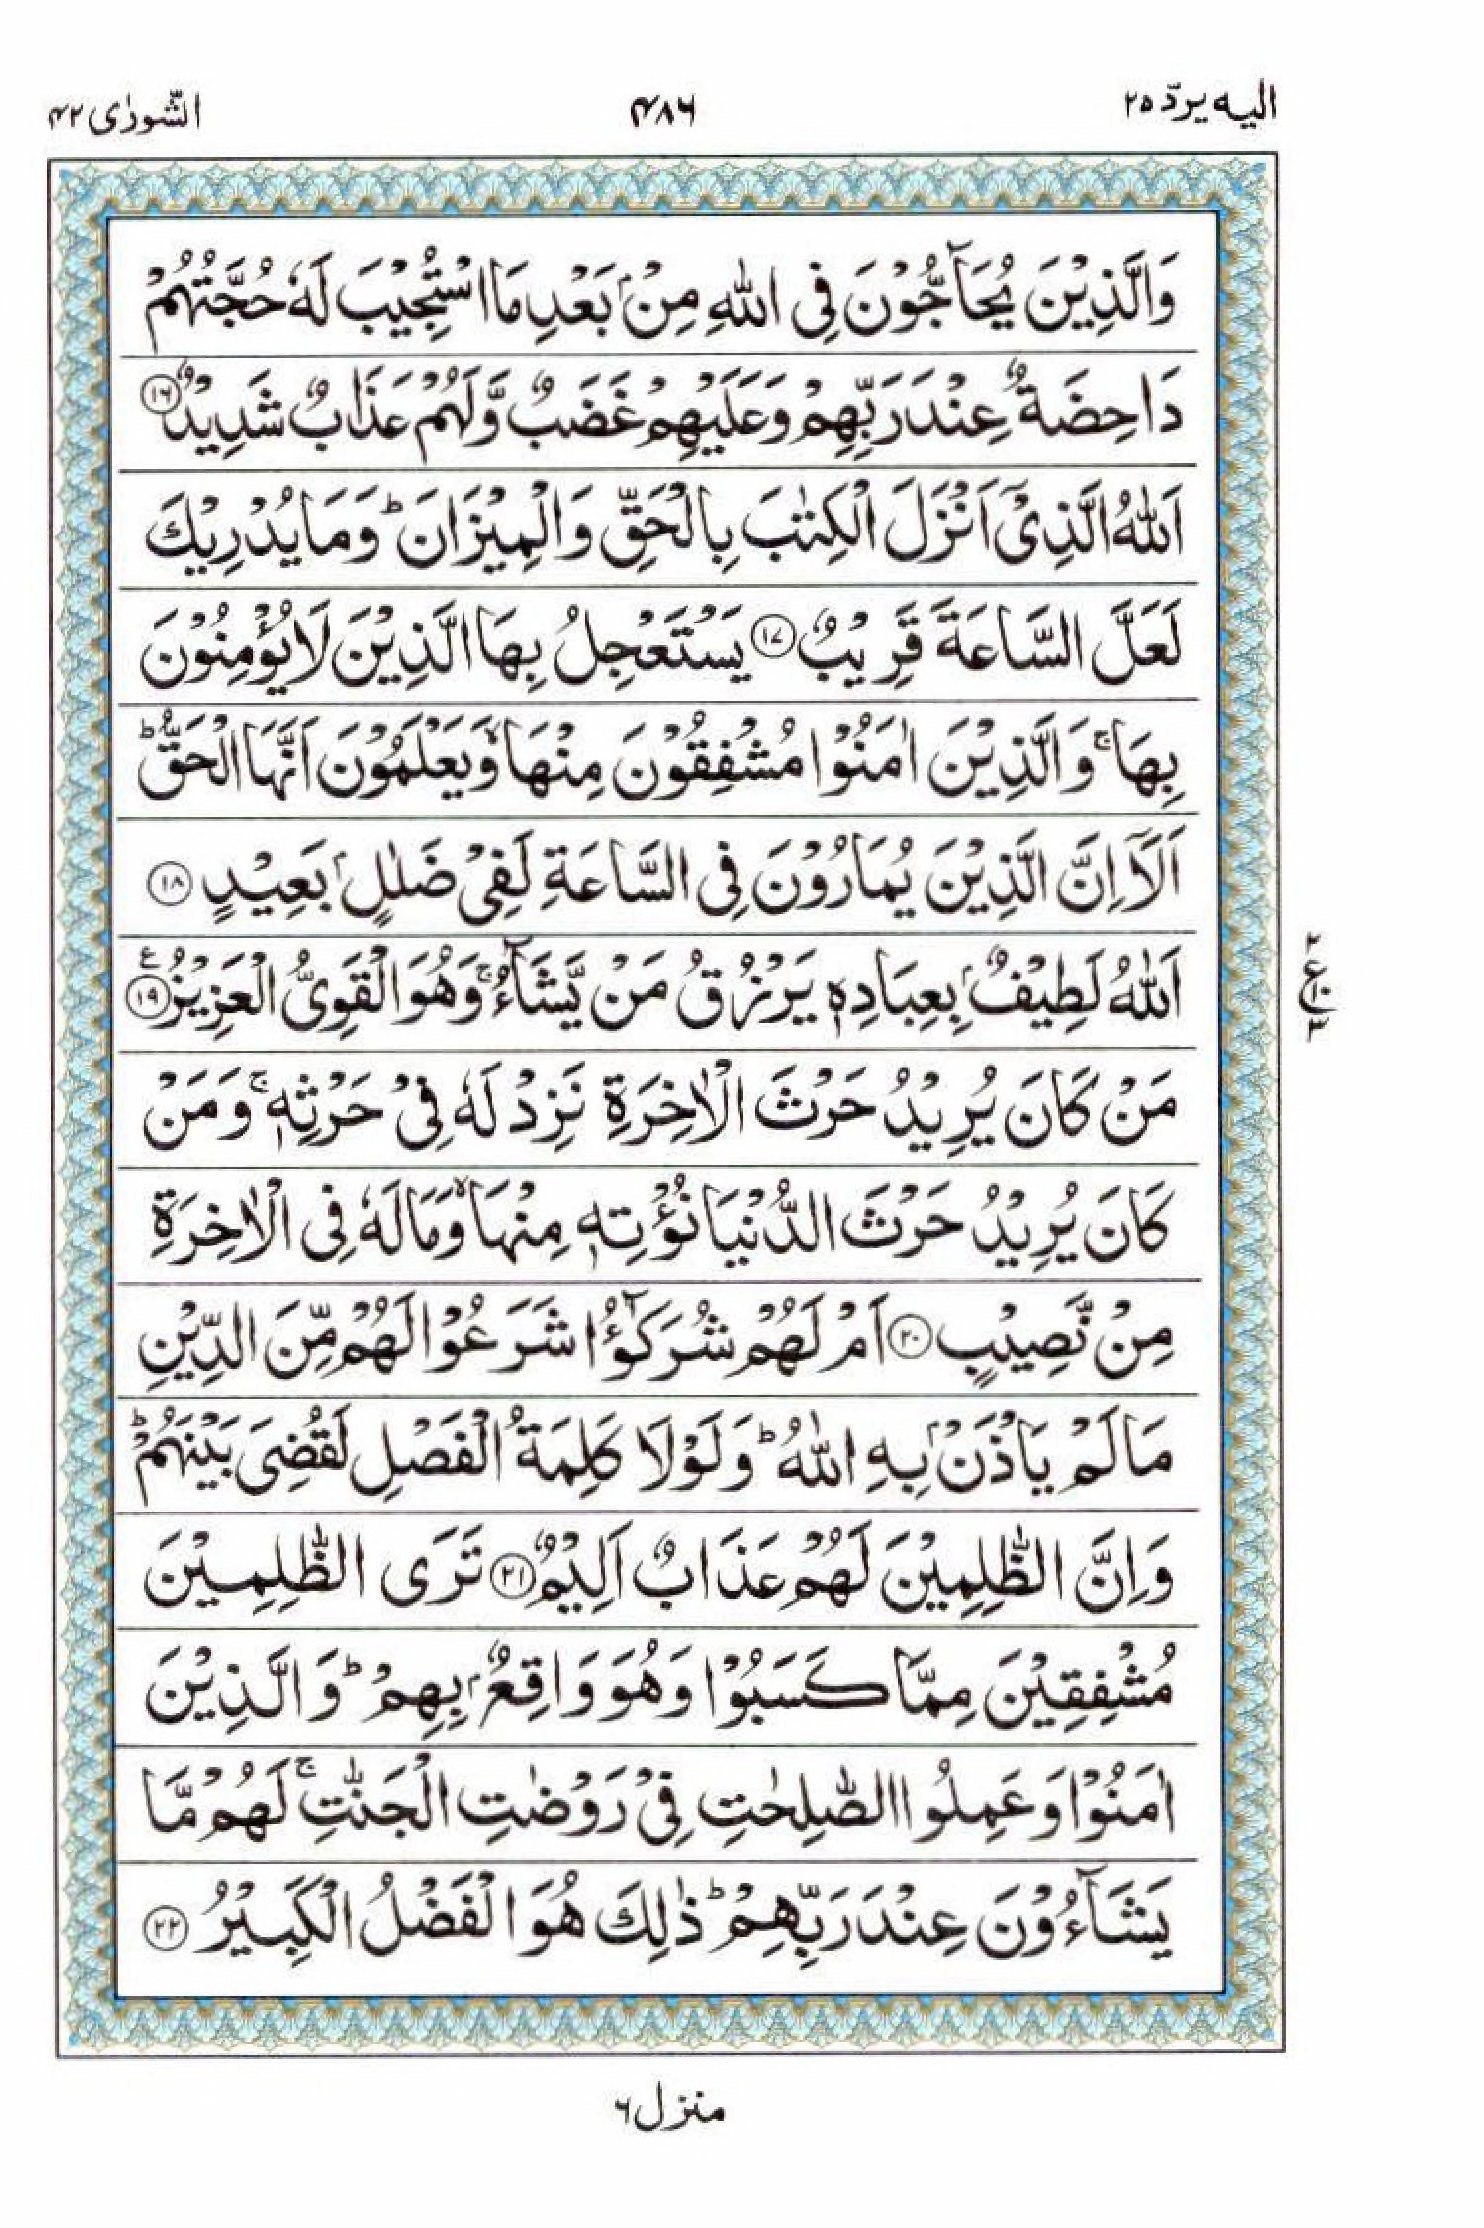 اليه يردّ ٢٥ ٤٨٦ الشّورٰى ٤٢
وَالَّذِيْنَ يُحَآجُّوْنَ فِى اللّٰهِ مِنْۢ بَعْدِ مَا اسْتُجِيْبَ لَهٗ حُجَّتُهُمْ
دَاحِضَةٌ عِنْدَ رَبِّهِمْ وَعَلَيْهِمْ غَضَبٌ وَّلَهُمْ عَذَابٌ شَدِيْدٌ ﴿١٦﴾
اَللّٰهُ الَّذِىْۤ اَنْزَلَ الْكِتٰبَ بِالْحَقِّ وَالْمِيْزَانَ ؕ وَمَا يُدْرِيْكَ
لَعَلَّ السَّاعَةَ قَرِيْبٌ ﴿١٧﴾ يَسْتَعْجِلُ بِهَا الَّذِيْنَ لَا يُؤْمِنُوْنَ
بِهَا ۚ وَالَّذِيْنَ اٰمَنُوْا مُشْفِقُوْنَ مِنْهَا ۙ وَيَعْلَمُوْنَ اَنَّهَا الْحَقُّ ؕ
اَلَاۤ اِنَّ الَّذِيْنَ يُمَارُوْنَ فِى السَّاعَةِ لَفِىْ ضَلٰلٍۢ بَعِيْدٍ ﴿١٨﴾
اَللّٰهُ لَطِيْفٌۢ بِعِبَادِهٖ يَرْزُقُ مَنْ يَّشَآءُ ۚ وَهُوَ الْقَوِىُّ الْعَزِيْزُ ﴿١٩﴾ ع
٢ ع ١٠ ٣
مَنْ كَانَ يُرِيْدُ حَرْثَ الْاٰخِرَةِ نَزِدْ لَهٗ فِىْ حَرْثِهٖ ۚ وَمَنْ
كَانَ يُرِيْدُ حَرْثَ الدُّنْيَا نُؤْتِهٖ مِنْهَا ۙ وَمَا لَهٗ فِى الْاٰخِرَةِ
مِنْ نَّصِيْبٍ ﴿٢٠﴾ اَمْ لَهُمْ شُرَكٰٓؤُا شَرَعُوْا لَهُمْ مِّنَ الدِّيْنِ
مَا لَمْ يَاْذَنْۢ بِهِ اللّٰهُ ؕ وَلَوْلَا كَلِمَةُ الْفَصْلِ لَقُضِىَ بَيْنَهُمْ ؕ
وَاِنَّ الظّٰلِمِيْنَ لَهُمْ عَذَابٌ اَلِيْمٌ ﴿٢١﴾ تَرَى الظّٰلِمِيْنَ
مُشْفِقِيْنَ مِمَّا كَسَبُوْا وَهُوَ وَاقِعٌۢ بِهِمْ ؕ وَالَّذِيْنَ
اٰمَنُوْا وَعَمِلُوا الصّٰلِحٰتِ فِىْ رَوْضٰتِ الْجَنّٰتِ ۚ لَهُمْ مَّا
يَشَآءُوْنَ عِنْدَ رَبِّهِمْ ؕ ذٰلِكَ هُوَ الْفَضْلُ الْكَبِيْرُ ﴿٢٢﴾
منزل ٦